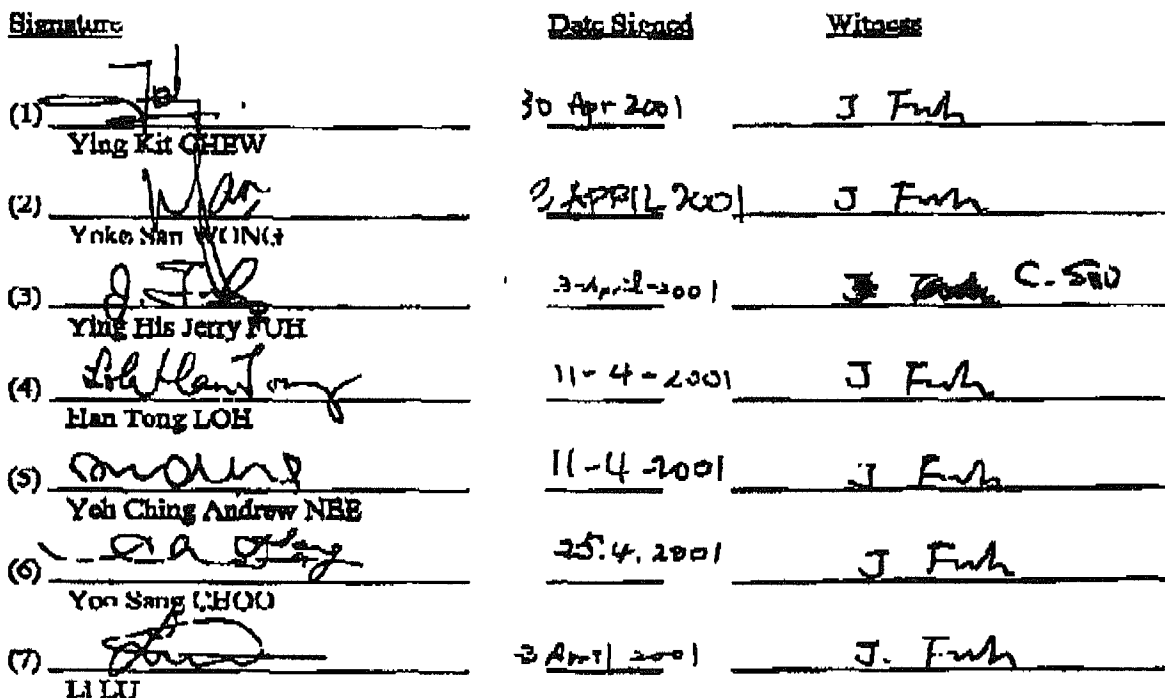 Signature Date Signed Witness
(1) 30 Apr 2001 J Fuh
Ying Kit CHEW
(2) Wong 3 APRIL 2001 J Fuh
Yoke San WONG
(3) J. Fuh 3-April-2001 C. Seo
Ying His Jerry FUH
(4) Loh Han Tong 11-4-2001 J Fuh
Han Tong LOH
(5) 11-4-2001 J Fuh
Yeh Ching Andrew NEE
(6) 25.4.2001 J Fuh
Yoo Sang CHOO
(7) 3 April 2001 J. Fuh
Li LU